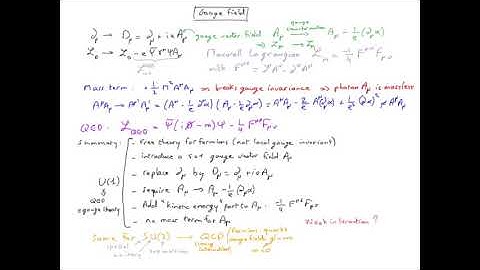 Gauge field
∂μ → Dμ = ∂μ + ieAμ gauge vector field Aμ gauge transformation → Aμ - 1/e (∂μα)
ℒ₀ → ℒ₀ - eΨ̄γᵘΨAμ
Maxwell Lagrangian ℒm = -1/4 FᵘᵛFμν
with Fᵘᵛ = ∂ᵘAᵛ - ∂ᵛAᵘ
Mass term: + 1/2 M²AᵘAμ → breaks gauge invariance → photon Aμ is massless
AᵘAμ → Aᵘ'Aμ' = (Aᵘ - 1/e ∂ᵘα)(Aμ - 1/e ∂μα) = AᵘAμ - 2/e Aᵘ(∂μα) + 1/e² (∂μα)² ≠ AᵘAμ
QED: ℒQED = Ψ̄(i D̸ - m)Ψ - 1/4 FᵘᵛFμν
Summary:
U(1)
QED
gauge theory
- Free theory for fermions (not local gauge invariant)
- introduce a gauge vector field Aμ
- replace ∂μ by Dμ = ∂μ + ieAμ
- require Aμ → Aμ - 1/e (∂μα)
- Add "kinetic energy" part for Aμ: -1/4 FᵘᵛFμν
- no mass term for Aμ
Weak interaction?
Same for SU(3) → QCD
special unitary
(strong interaction)
fermions: quarks
gauge fields: gluons
m=0